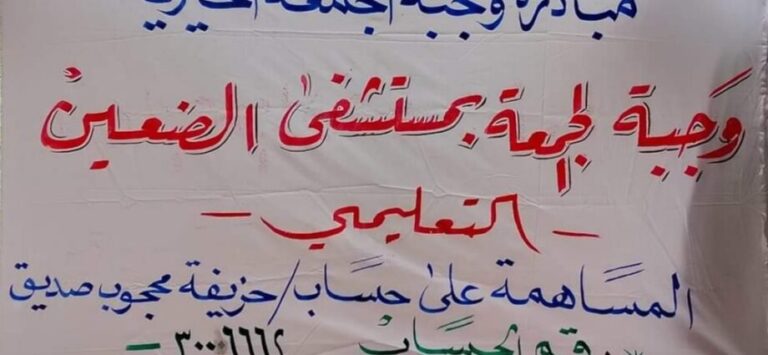 مبادرة وجبة الجمعة الخيرية
وَجبة الجمعة بمستشفى الضعينْ
- التعليمي -
المساهمة على حساب/حزيفة محجوب صديق
رقم الحساب